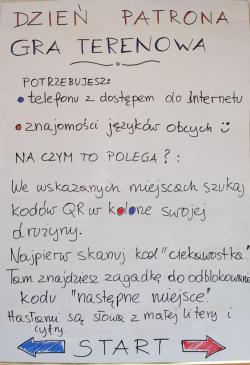 DZIEŃ PATRONA
GRA TERENOWA
POTRZEBUJESZ:
• telefonu z dostępem do Internetu
• znajomości języków obcych ☺
NA CZYM TO POLEGA?:
We wskazanych miejscach szukaj
kodów QR w kolorze swojej
drużyny.
Najpierw skanuj kod "ciekawostka".
Tam znajdziesz zagadkę do odblokowania
kodu "następne miejsce".
Hasłami są słowa z małej litery i
cyfry.
START